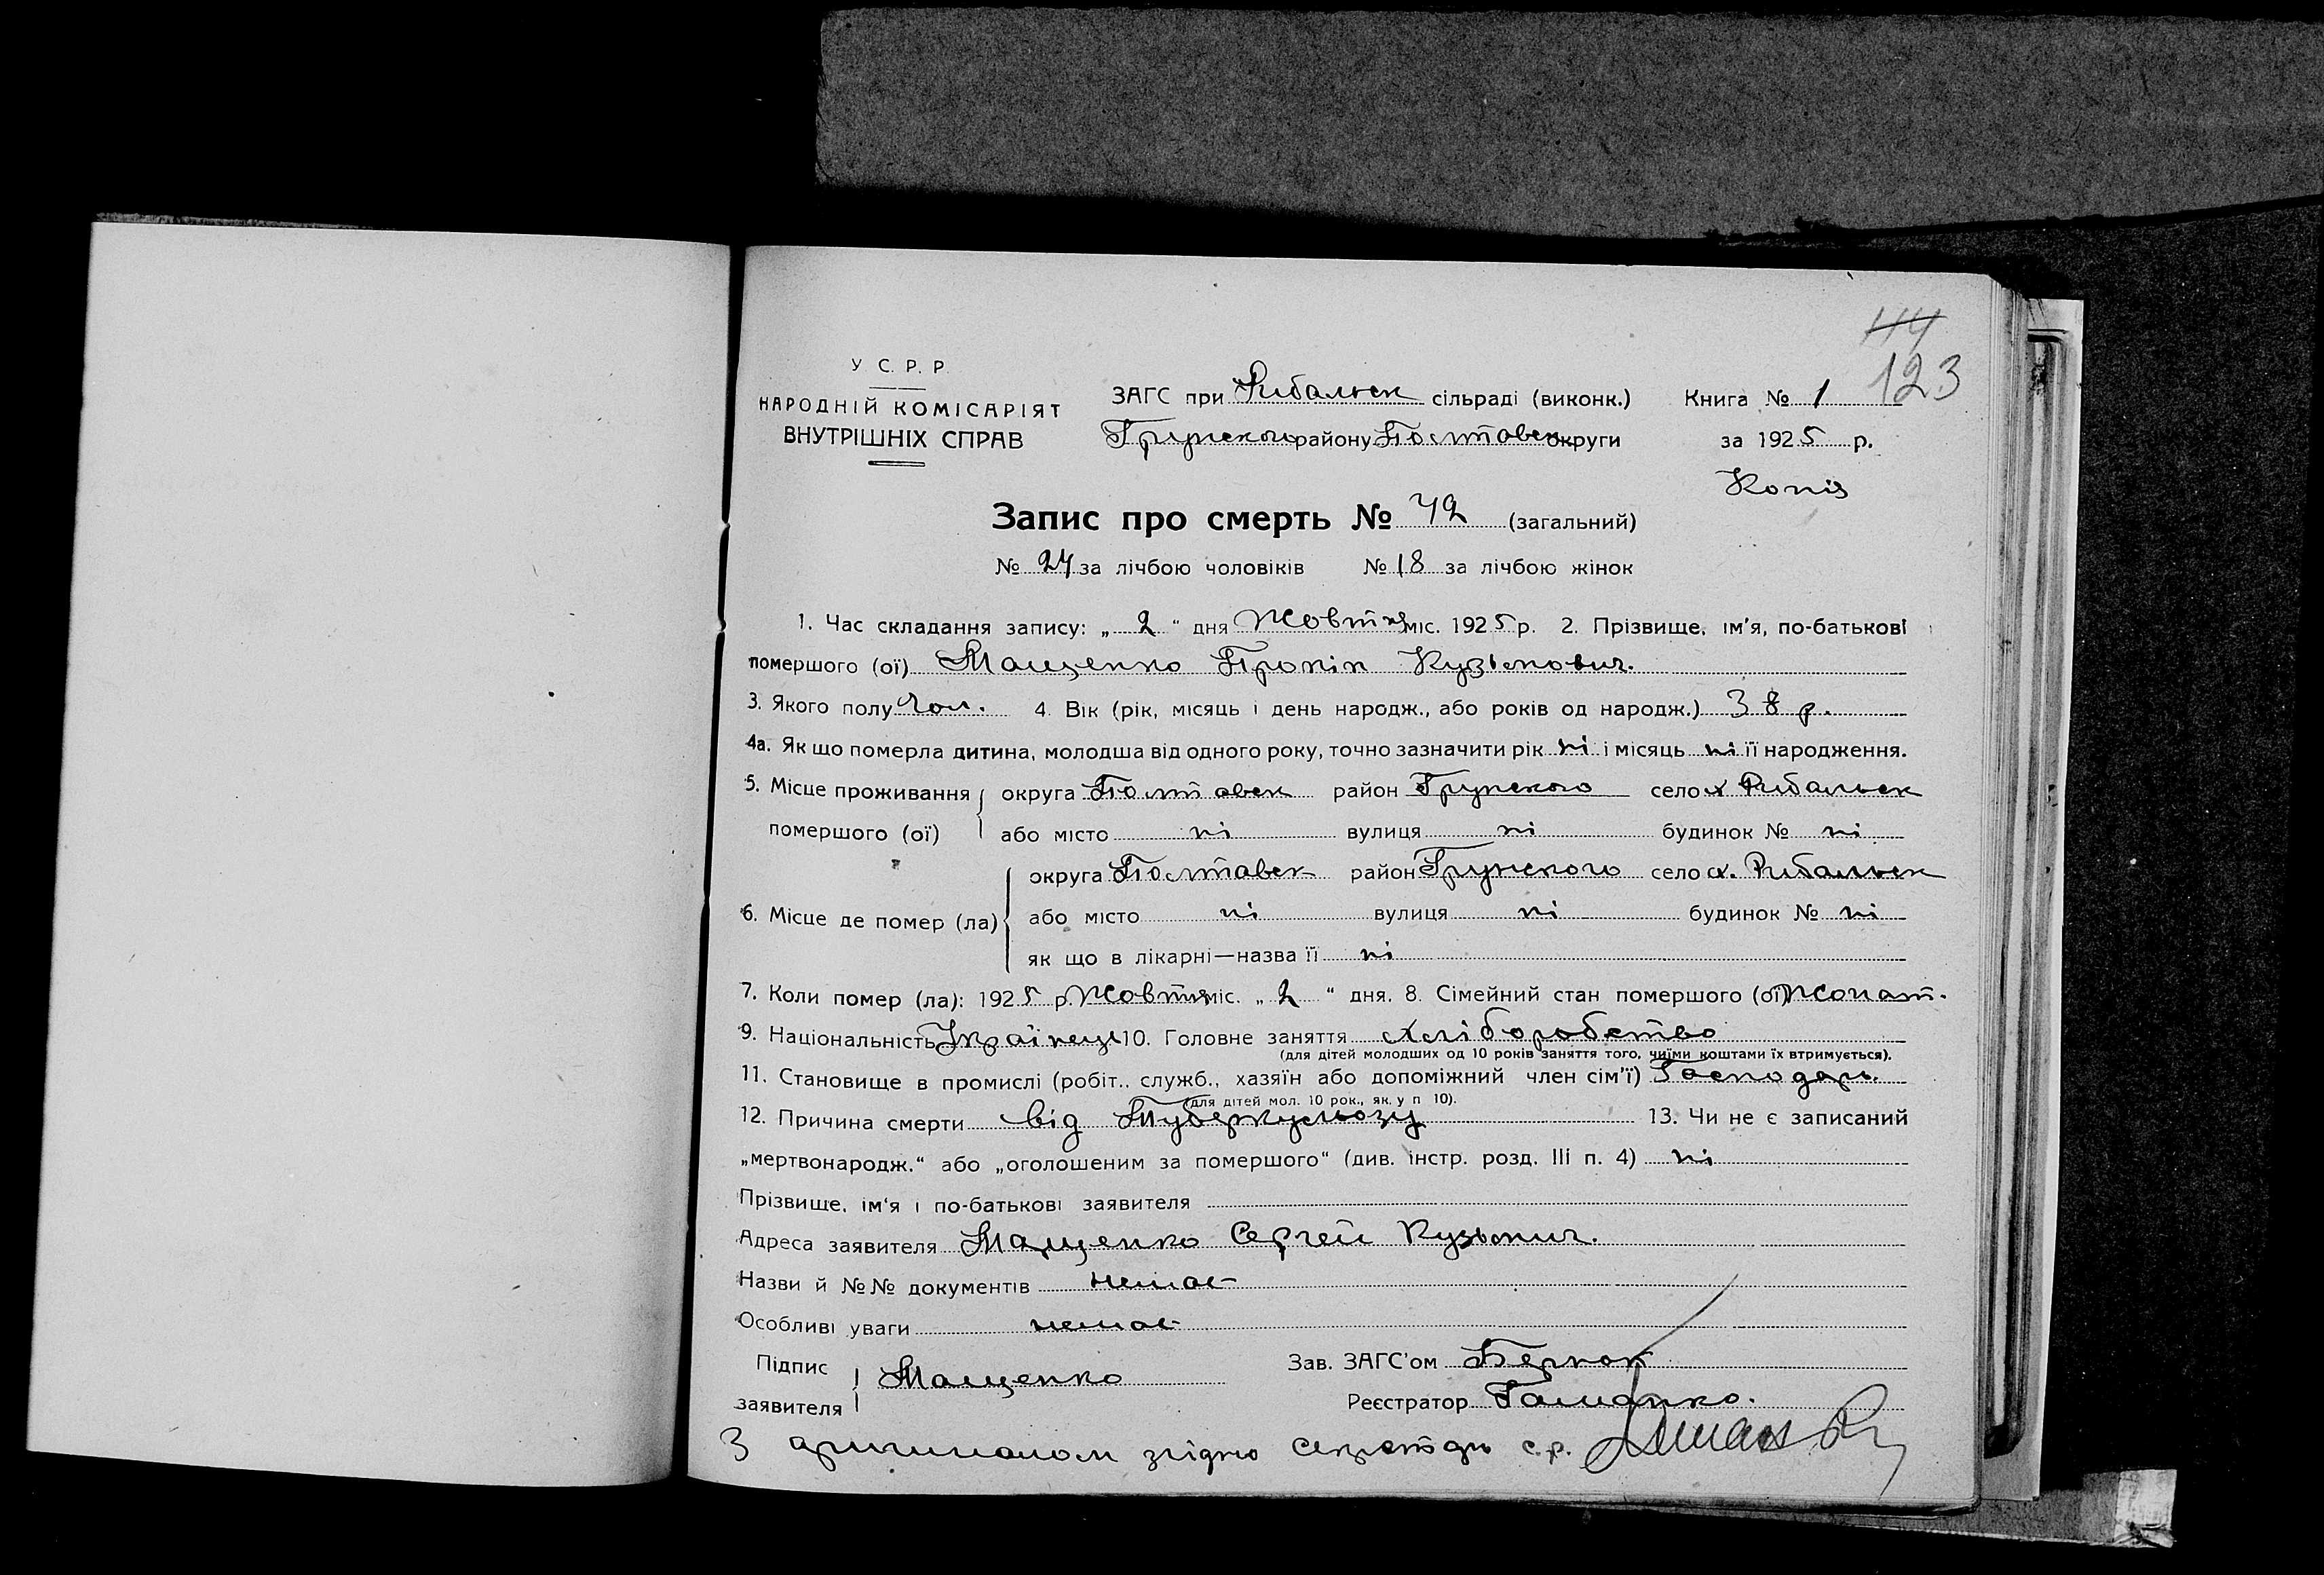 44
123
У С. Р. Р
НАРОДНІЙ КОМІСАРІЯТ
ВНУТРІШНІХ СПРАВ
ЗАГС при Рибальск сільраді (виконк.)
Грунского району Полтавск округи
Книга № 1
за 1925 р.
Копія
Запис про смерть № 42 (загальний)
№ 24 за лічбою чоловіків № 18 за лічбою жінок
1. Час складання запису: „ 2 “ дня Жовтня міс. 1925 р. 2. Прізвище, ім'я, по-батькові
помершого (ої) Мащенко Прокіп Кузьмович.
3. Якого полу Чол. 4. Вік (рік, місяць і день народж., або років од народж.) 38 р.
4а. Як що померла дитина, молодша від одного року, точно зазначити рік ні і місяць ні її народження.
5. Місце проживання округа Полтавск район Грунского село х Рибальск
помершого (ої) або місто ні вулиця ні будинок № ні
округа Полтавск район Грунского село х. Рибальск
6. Місце де помер (ла) або місто ні вулиця ні будинок № ні
як що в лікарні—назва її ні
7. Коли помер (ла): 1925 р. Жовтня міс. „ 2 “ дня. 8. Сімейний стан помершого (ої) Жонат.
9. Національність Українець 10. Головне заняття Хліборобство
(для дітей молодших од 10 років заняття того, чиїми коштами їх втримується).
11. Становище в промислі (робіт., служб., хазяїн або допоміжний член сім'ї) Господарь.
(для дітей мол. 10 рок., як. у п 10).
12. Причина смерти від Туберкульозу 13. Чи не є записаний
„мертвонародж.“ або „оголошеним за помершого“ (див. інстр. розд. III п. 4) ні
Прізвище, ім'я і по-батькові заявителя
Адреса заявителя Мащенко Сергей Кузьмич.
Назви й №№ документів немає
Особливі уваги немає
Підпис
заявителя Мащенко
Зав. ЗАГС'ом
Реєстратор
З оригиналом згідно Секретарь с.р.